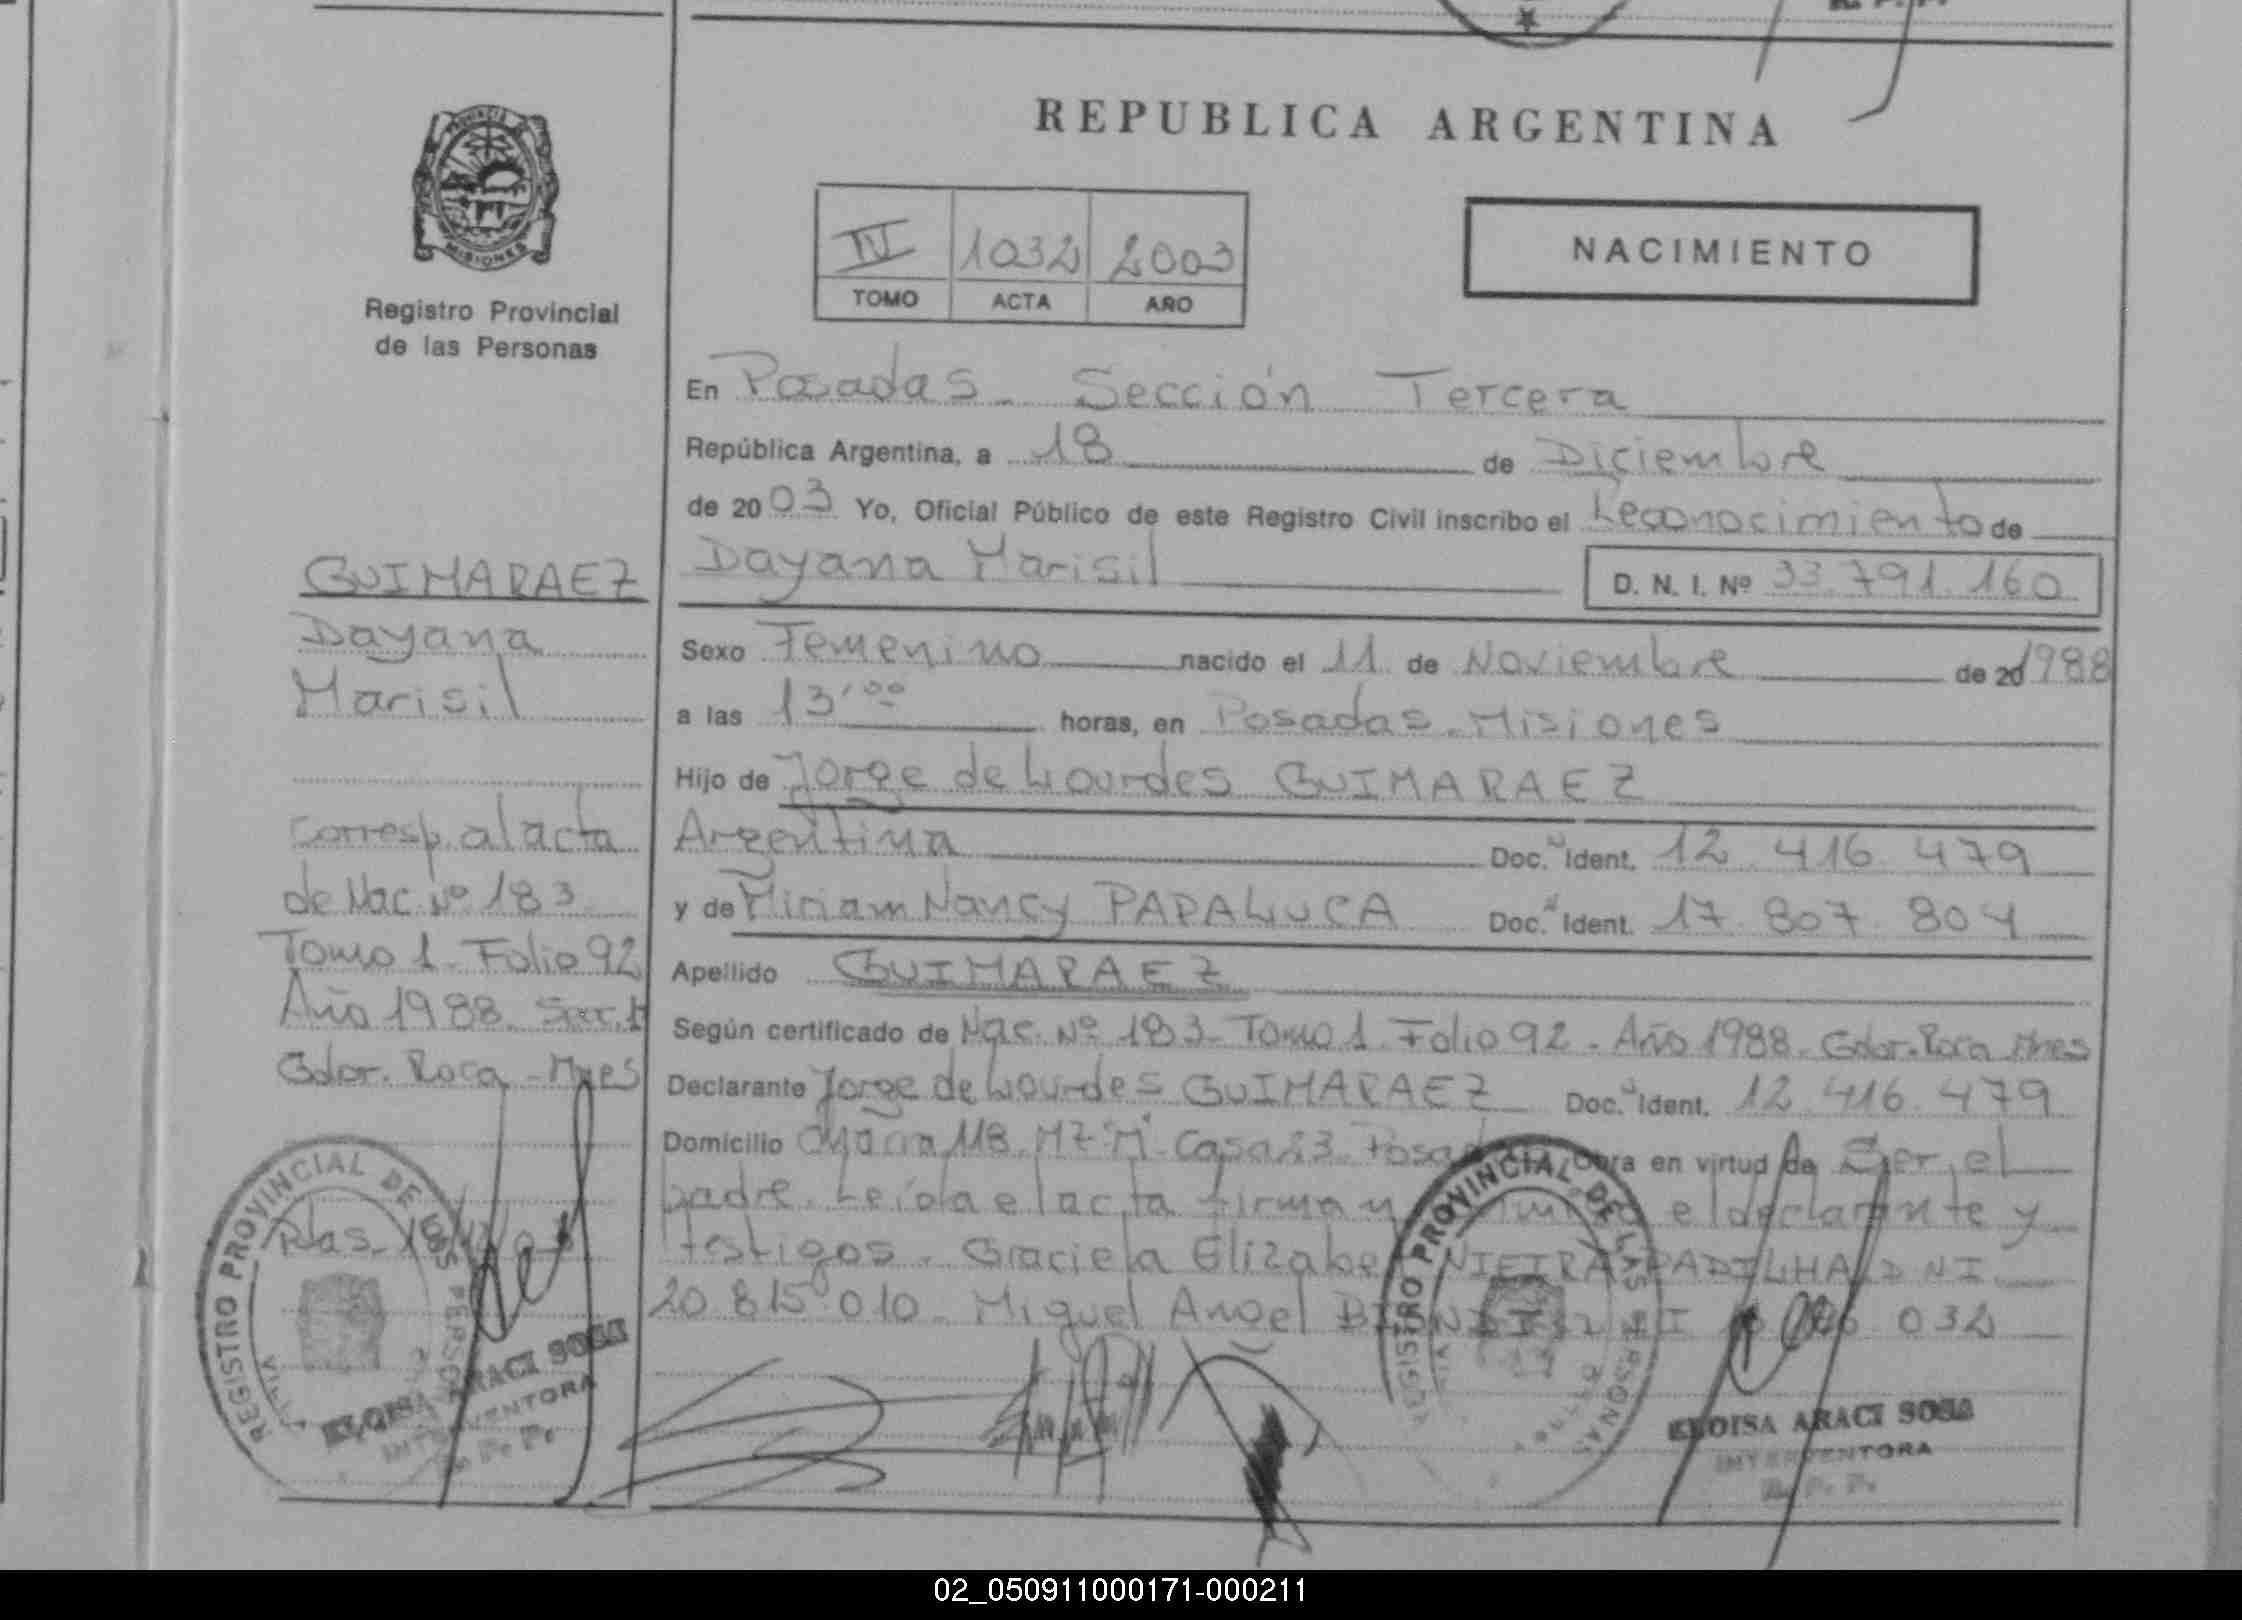 REPUBLICA ARGENTINA
PROVINCIA DE
MISIONES
Registro Provincial
de las Personas
IV 1032 2003
TOMO ACTA AÑO
NACIMIENTO
En Posadas - Sección Tercera
República Argentina, a 18 de Diciembre
de 2003 Yo, Oficial Público de este Registro Civil inscribo el Reconocimiento de
Dayana Marisil D. N. I. Nº 33.791.160
Sexo Femenino nacido el 11 de Noviembre de 20 1988
a las 13,00 horas, en Posadas - Misiones
Hijo de Jorge de Lourdes GUIMARAEZ
Argentina Doc. Ident. 12.416.479
y de Miriam Nancy PAPALUCA Doc. Ident. 17.807.804
Apellido GUIMARAEZ
Según certificado de Nac. Nº 183 - Tomo 1 Folio 92 - Año 1988 - Gdor. Roca Mnes
Declarante Jorge de Lourdes GUIMARAEZ Doc. Ident. 12.416.479
Domicilio Chacra 118 - MZ "M" - Casa 23 - Obra en virtud de Ser el
padre. Leída el acta firman el declarante y
testigos - Graciela VIEIRA PADILHA DNI
20.815.010 - Miguel Angel 032
GUIMARAEZ
Dayana
Marisil
Corresp. al acta
de Nac. Nº 183
Tomo 1 - Folio 92
Año 1988
Gdor. Roca - Mnes
Pdas. 18/12/03
REGISTRO PROVINCIAL DE LAS PERSONAS
ELOISA ARACI SOSA
INTERVENTORA
R. P. P.
REGISTRO PROVINCIAL DE LAS PERSONAS
ELOISA ARACI SOSA
INTERVENTORA
R. P. P.
02_050911000171-000211